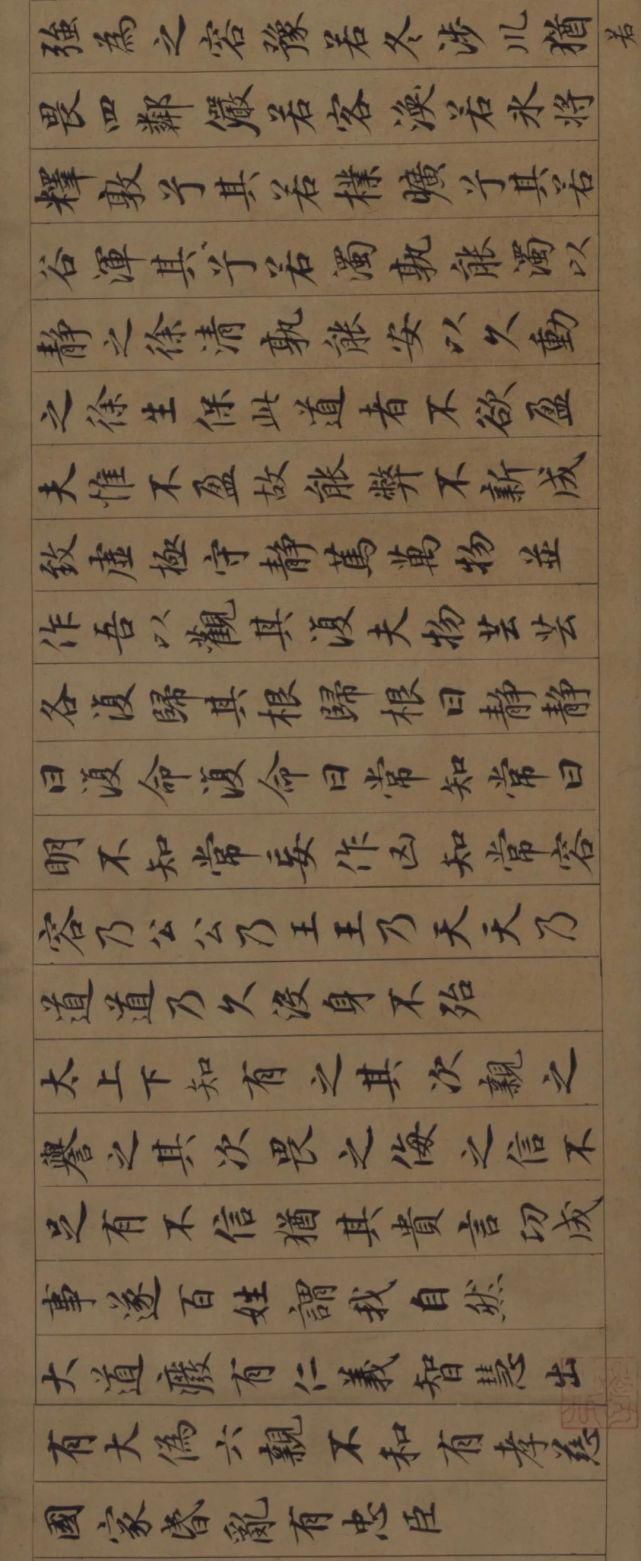 強為之容豫若冬涉川猶若
畏四鄰儼若客渙若氷將
釋敦兮其若樸曠兮其若
谷渾其兮若濁孰能濁以
靜之徐清孰能安以久動
之徐生保此道者不欲盈
夫惟不盈故能弊不新成
致虛極守靜篤萬物並
作吾以觀其復夫物芸芸
各復歸其根歸根曰靜靜
曰復命復命曰常知常曰
明不知常妄作凶知常容
容乃公公乃王王乃天天乃
道道乃久沒身不殆
太上下知有之其次親之
譽之其次畏之侮之信不
足有不信猶其貴言功成
事遂百姓謂我自然
大道廢有仁義智慧出
有大偽六親不和有孝慈
國家昏亂有忠臣